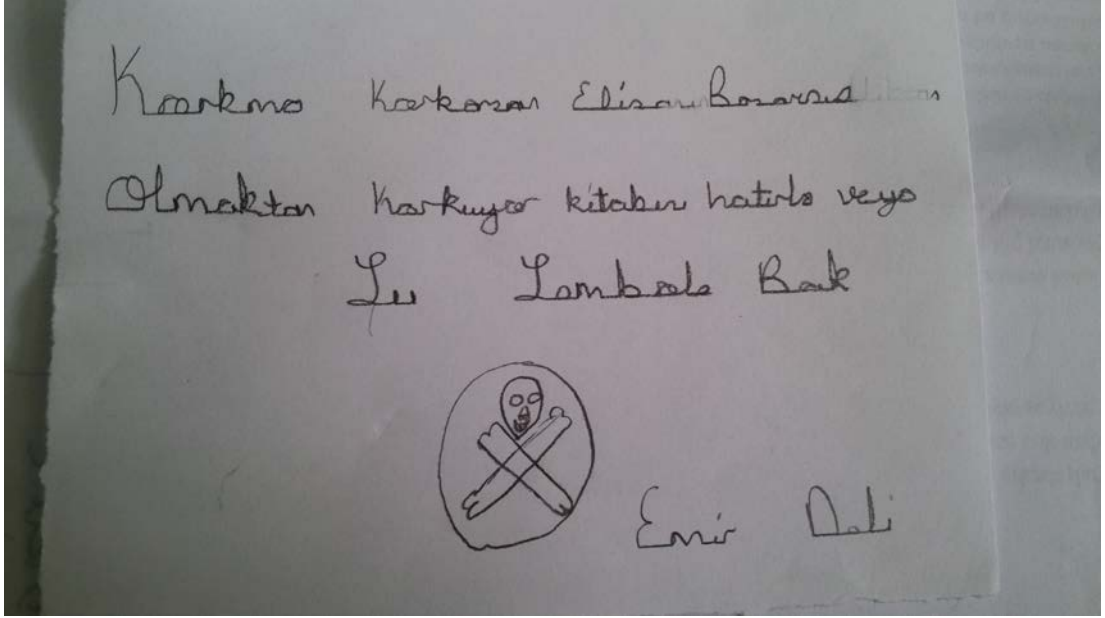 Korkma Korkarsan Elisa Başarısız
Olmaktan Korkuyor kitabını hatırla veya
Şu Sembole Bak
Emir Dali